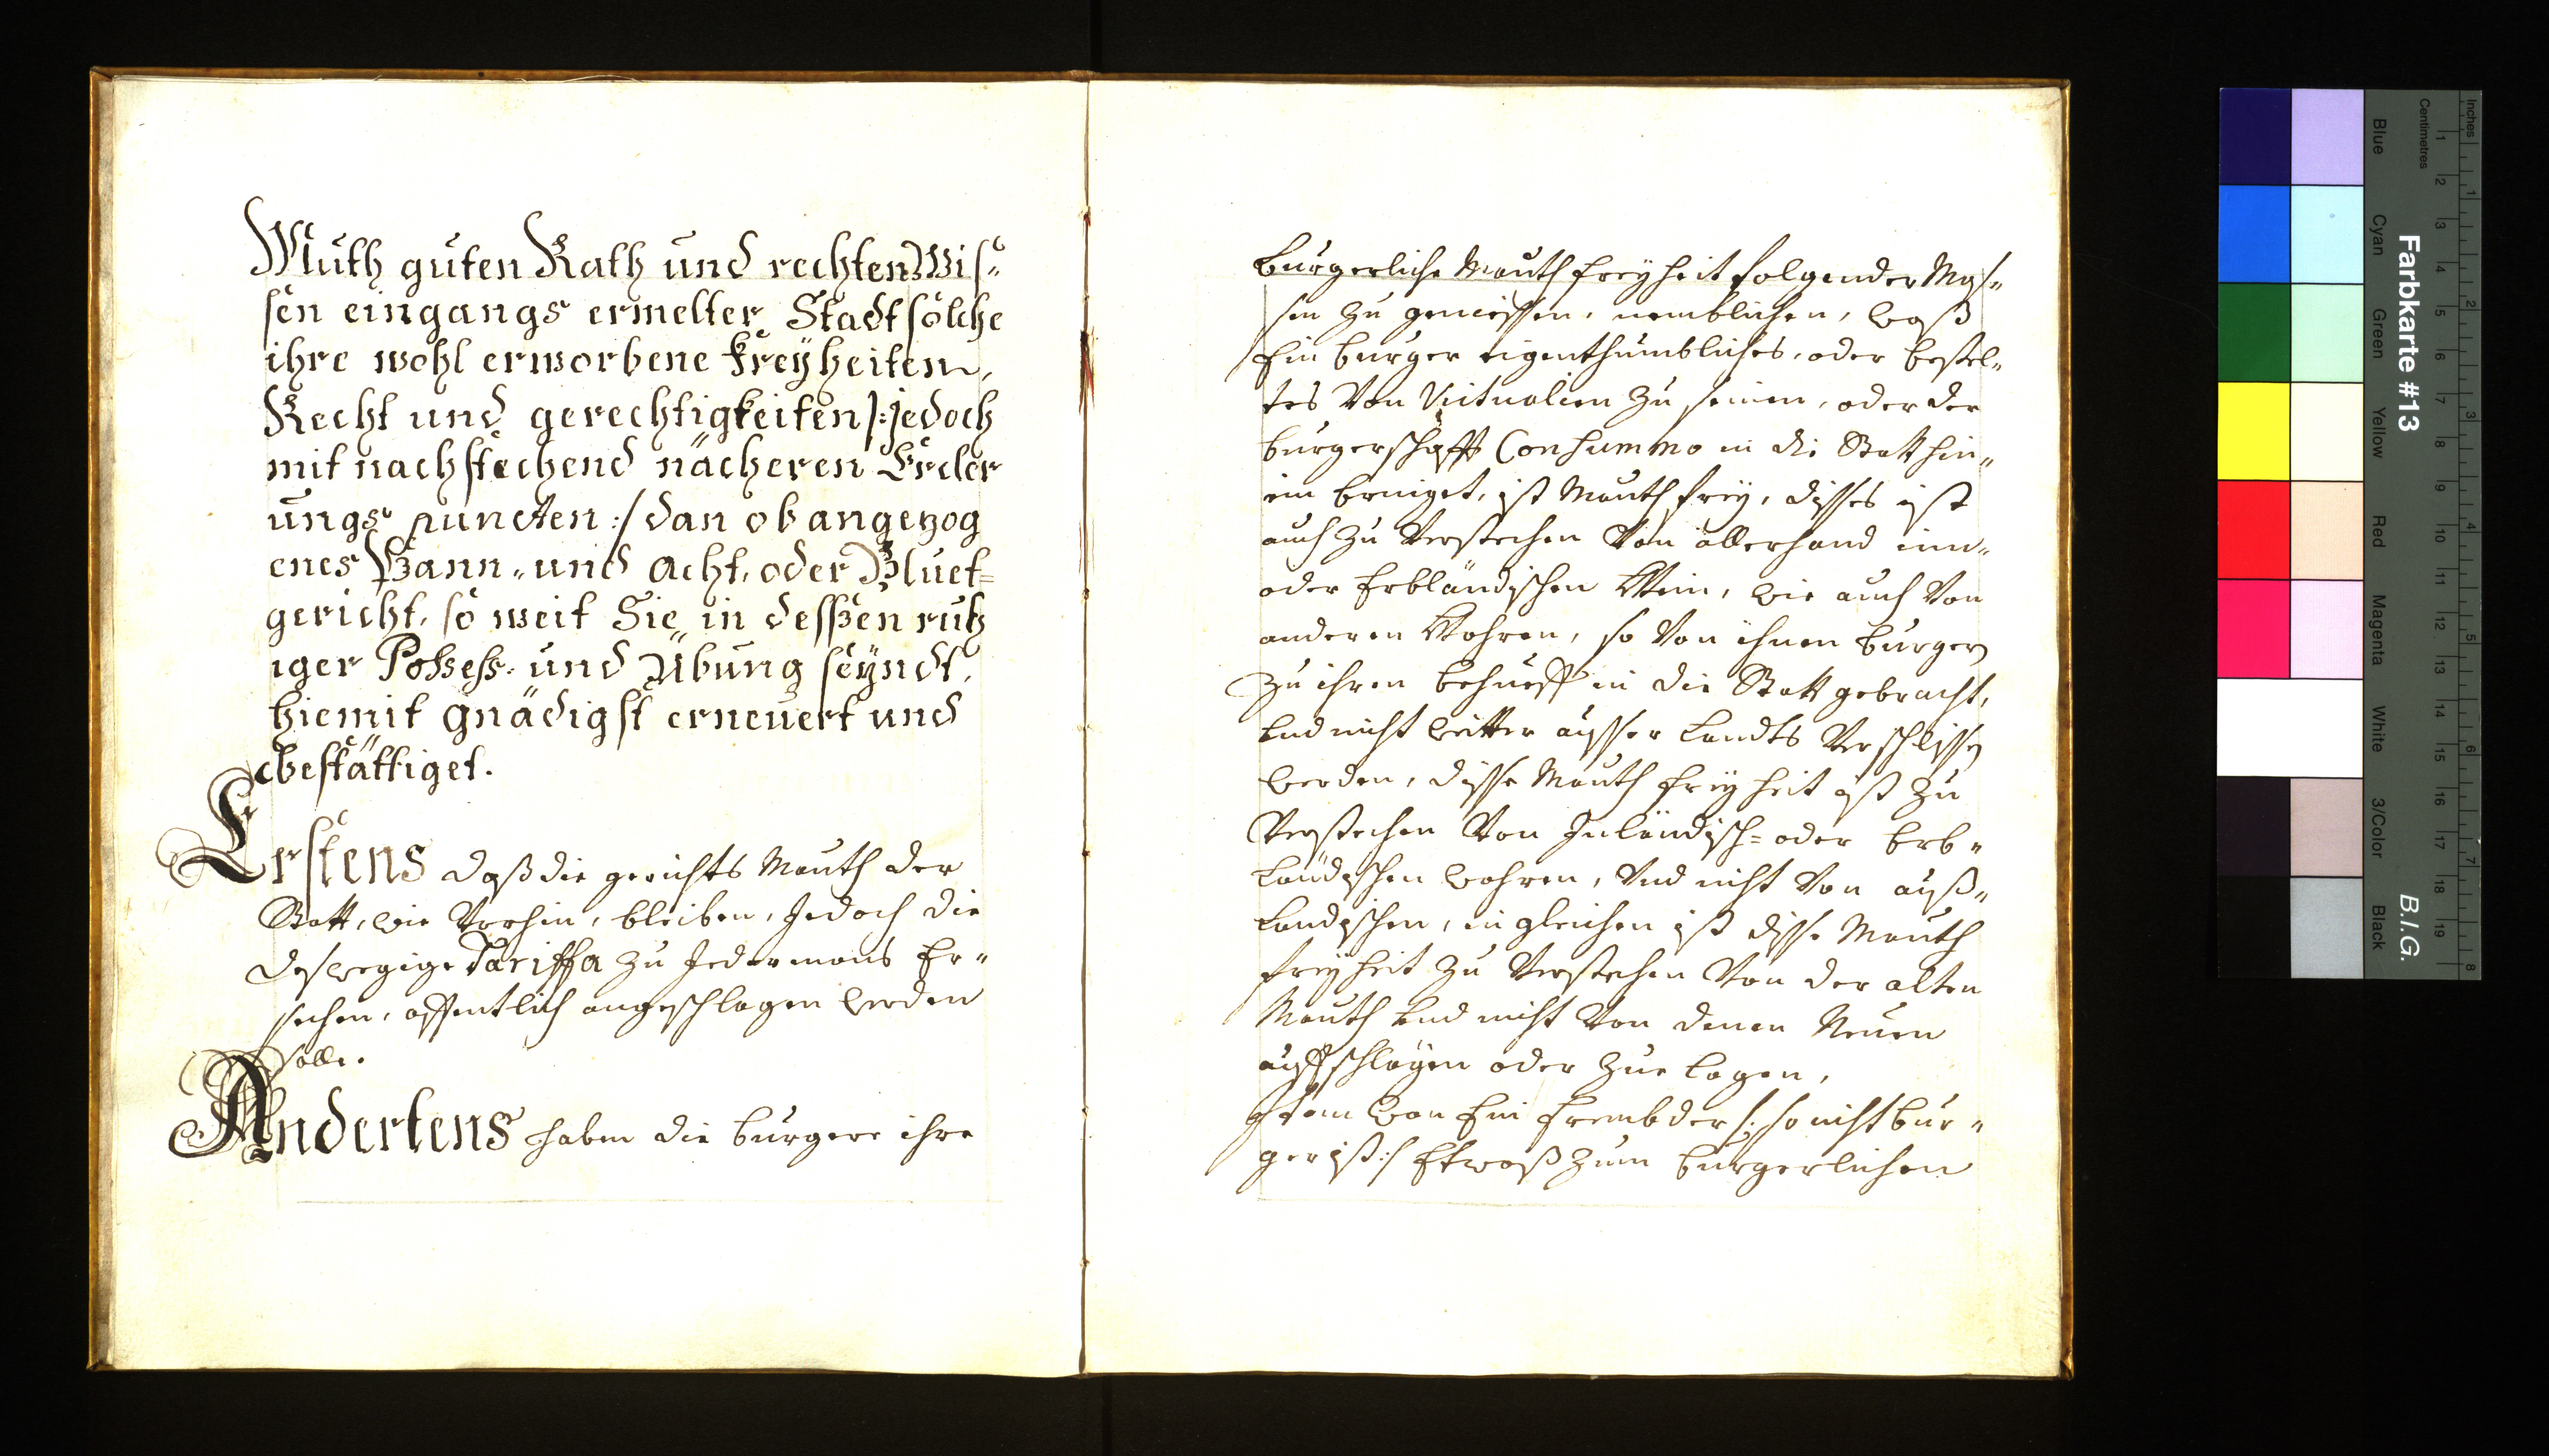 Muth guten Rath und rechten Wis„
sen eingangs ermelter Stadt solche
ihre wohl erworbene Freyheiten,
Recht und gerechtigkeiten /:jedoch
mit nachstechend näcberen Erler
ungs puncten :/ dan ob angezog
enes Bann„ und Acht, oder Bluet=
gericht, so weit Sie in desßen ruh
iger Possess: und Übung seyndt,
hiemit gnädigst erneuert und
bestättiget.
Erstens daß die gerichts Mauth der
Statt, wie Vorhin, bleiben, Jedoch die
deswegige Tariffa zu Jedermans Er„
sechen, offentlich angeschlagen werden
solle.
Andertens haben die burgere ihre
burgerliche Mauth freyheit folgender Mas„
sen zu geniessen, nemblichen, waß
Ein burger eigenthumbliches, oder bestel„
tes Von Victualien zu seinem, oder der
burgerschafft Consummo in die Statt hin„
ein bringet, ist Mauth frey, disses ist
auch zu Verstechen Von allerhand inn„
oder Erbländischen Wein, wie auch Von
anderen Wahren, so Von ihnen burgern
zu ihren behueff in die Statt gebracht,
und nicht weitter ausser Landts Verschlissen
werden, disse Mauth freyheit ist zu
Verstechen Von Inländisch= oder Erb„
Ländischen wahren, Und nicht Von auß„
landischen, in gleichen ist disse Mauth
freyheit zu Verstechen Von der alten
Mauth und nicht Von denen Neuen
auffschlägen oder Zue lagen,
Item wan Ein frembder /: so nicht bur„
ger ist :/ Etwaß zum burgerlichen
Farbkarte #13
B.I.G.
Centimetres
Inches
Blue
Cyan
Green
Yellow
Red
Magenta
White
3/Color
Black